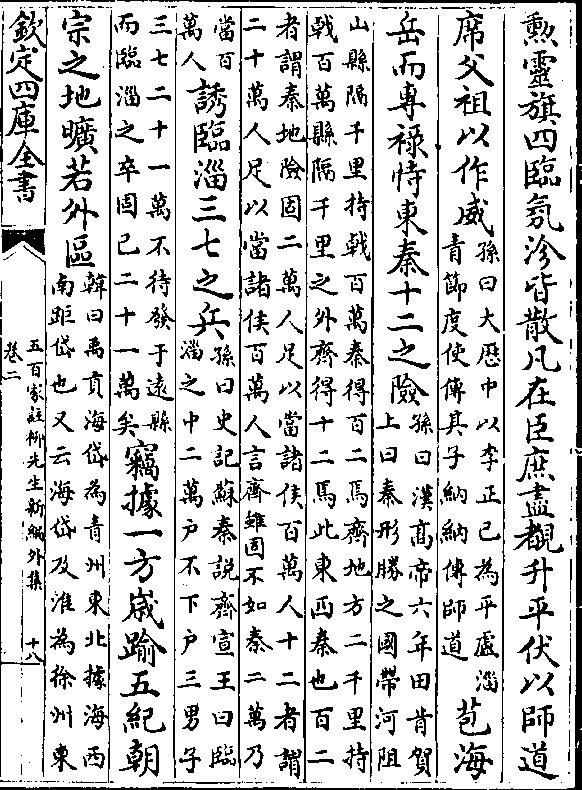 勲靈旗四臨氛沴皆散凡在臣庶盡覩升平伏以師道
席父祖以作威孫曰大厯中以李正己為平盧淄
青節度使傳其子納納傳師道苞海
岳而專祿恃東秦十二之險孫曰漢髙帝六年田肯賀
上曰秦形勝之國帶河阻
山縣隔千里持㦸百萬秦得百二焉齊地方二千里持
㦸百萬縣隔千里之外齊得十二焉此東西秦也百二
者謂秦地險固二萬人足以當諸侯百萬人十二者謂
二十萬人足以當諸侯百萬人言齊雖固不如秦二萬乃
當百
萬人誘臨淄三七之兵孫曰史記蘇秦説齊宣王曰臨
淄之中二萬户不下户三男子
三七二十一萬不待發于遠縣
而臨淄之卒固已二十一萬矣竊據一方歲踰五紀朝
宗之地曠若外區韓曰禹貢海岱為青州東北據海西
南距岱也又云海岱及淮為徐州東
欽定四庫全書
五百家註柳先生新編外集
卷二
十八